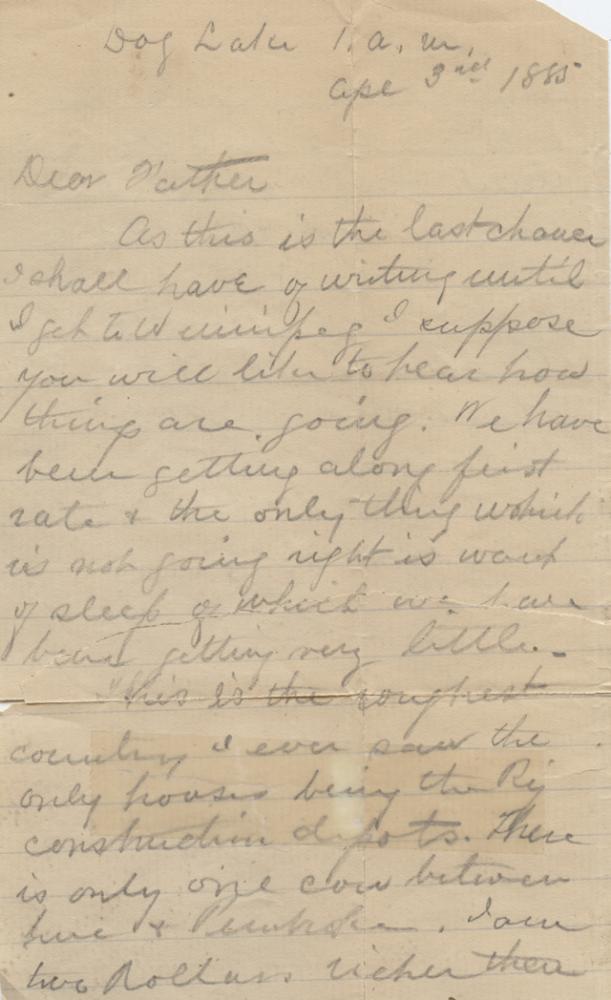 Dog Lake 1. a. m,
Apl 3rd 1885
Dear Father
As this is the last chance
I shall have of writing until
I get to Winnipeg I suppose
you will like to hear how
things are going. We have
been getting along first
rate & the only thing which
is not going right is want
of sleep of which we have
been getting very little.-
This is the roughest
country I ever saw the
only houses being the Ry
construction depots. There
is only one cow between
here & Pembroke. I am
two Dollars richer than